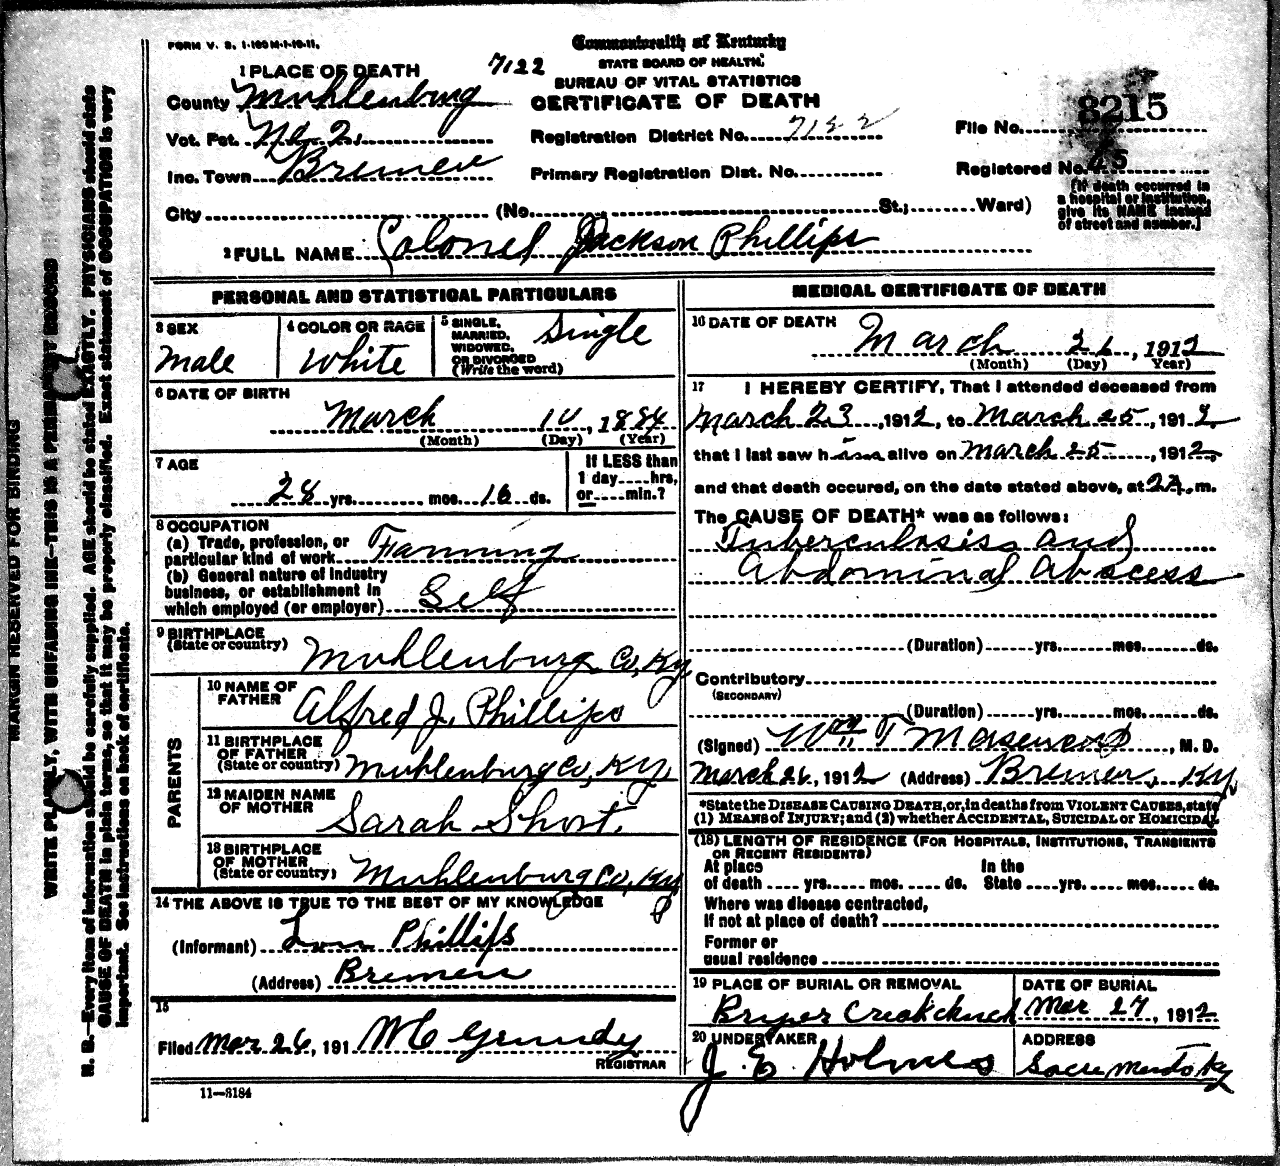 FORM V. S. 1-160M-1-10-11.
Commonwealth of Kentucky
STATE BOARD OF HEALTH.
BUREAU OF VITAL STATISTICS
CERTIFICATE OF DEATH
7122
1 PLACE OF DEATH
County Muhlenburg
Vot. Pct. No 2.
Inc. Town Bremen
City (No. St.; Ward)
Registration District No. 7122
Primary Registration Dist. No.
File No. 8215
Registered No. 45
[If death occurred in
a hospital or institution,
give its NAME instead
of street and number.]
2 FULL NAME Colonel Jackson Phillips
PERSONAL AND STATISTICAL PARTICULARS
3 SEX
Male
4 COLOR OR RACE
White
5 SINGLE,
MARRIED,
WIDOWED,
OR DIVORCED
(Write the word)
Single
6 DATE OF BIRTH
March 10, 1884
(Month) (Day) (Year)
7 AGE
28 yrs. mos. 16 ds.
If LESS than
1 day hrs,
or min.?
8 OCCUPATION
(a) Trade, profession, or
particular kind of work Farming
(b) General nature of industry
business, or establishment in
which employed (or employer) Self
9 BIRTHPLACE
(State or country) Muhlenburg Co, Ky
PARENTS
10 NAME OF
FATHER Alfred J. Phillips
11 BIRTHPLACE
OF FATHER
(State or country) Muhlenburg Co, Ky,
12 MAIDEN NAME
OF MOTHER Sarah Short.
13 BIRTHPLACE
OF MOTHER
(State or country) Muhlenburg Co, Ky
14 THE ABOVE IS TRUE TO THE BEST OF MY KNOWLEDGE
(Informant) Phillips
(Address) Bremen
15
Filed Mar 26, 191 W C Grundy
REGISTRAR
11—3184
MEDICAL CERTIFICATE OF DEATH
16 DATE OF DEATH
March 26, 1912
(Month) (Day) Year)
17 I HEREBY CERTIFY, That I attended deceased from
March 23, 1912, to March 25, 1912,
that I last saw him alive on March 25, 1912,
and that death occured, on the date stated above, at m.
The CAUSE OF DEATH* was as follows:
Tuberculosis and
Abdominal Abscess
(Duration) yrs. mos. ds.
Contributory
(SECONDARY)
(Duration) yrs. mos. ds.
(Signed) Wm T , M. D.
March 26, 1912 (Address) Bremen, Ky,
*State the DISEASE CAUSING DEATH, or, in deaths from VIOLENT CAUSES, state
(1) MEANS OF INJURY; and (2) whether ACCIDENTAL, SUICIDAL or HOMICIDAL
(18) LENGTH OF RESIDENCE (FOR HOSPITALS, INSTITUTIONS, TRANSIENTS
OR RECENT RESIDENTS)
At place In the
of death yrs. mos. ds. State yrs. mos. ds.
Where was disease contracted,
If not at place of death?
Former or
usual residence
19 PLACE OF BURIAL OR REMOVAL
DATE OF BURIAL
Mar 27, 1912
20 UNDERTAKER
J. E. Holmes
ADDRESS
Sacramento Ky
MARGIN RESERVED FOR BINDING
WRITE PLAINLY, WITH UNFADING INK—THIS IS A PERMANENT RECORD
N. B.—Every item of information should be carefully supplied. AGE should be stated EXACTLY. PHYSICIANS should state
CAUSE OF DEATH in plain terms, so that it may be properly classified. Exact statement of OCCUPATION is very
important. See instructions on back of certificate.